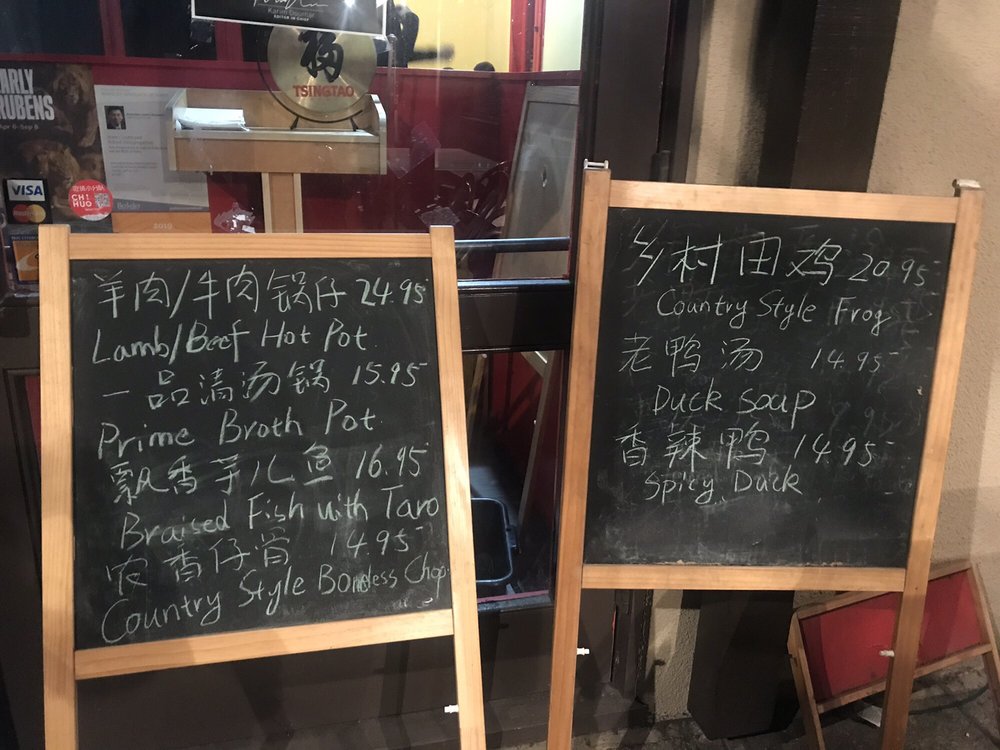 Karim Doumar
EDITOR IN CHIEF
TSINGTAO
EARLY
RUBENS
Apr 6-Sep 8
VISA
MasterCard
CHI
HUO
2019
羊肉/牛肉锅仔 24.95
Lamb/Beef Hot Pot
一品清汤锅 15.95
Prime Broth Pot
飘香芋儿鱼 16.95
Braised Fish with Taro
农香仔 14.95
Country Style Boneless Chop
乡村田鸡 20.95
Country Style Frog
老鸭汤 14.95
Duck Soup
香辣鸭 14.95
Spicy Duck